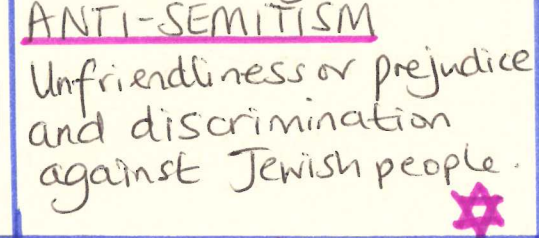 ANTI-SEMITISM
Unfriendliness or prejudice
and discrimination
against Jewish people.